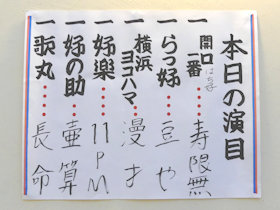 本日の演目
一 開口一番 はち好 ・・・・・ 寿限無
一 らっ好 ・・・・・ 豆や
一 横浜ヨコハマ ・・・ 漫才
一 好楽 ・・・・・ 11PM
一 好の助 ・・・・ 壷算
一 歌丸 ・・・・・ 長命